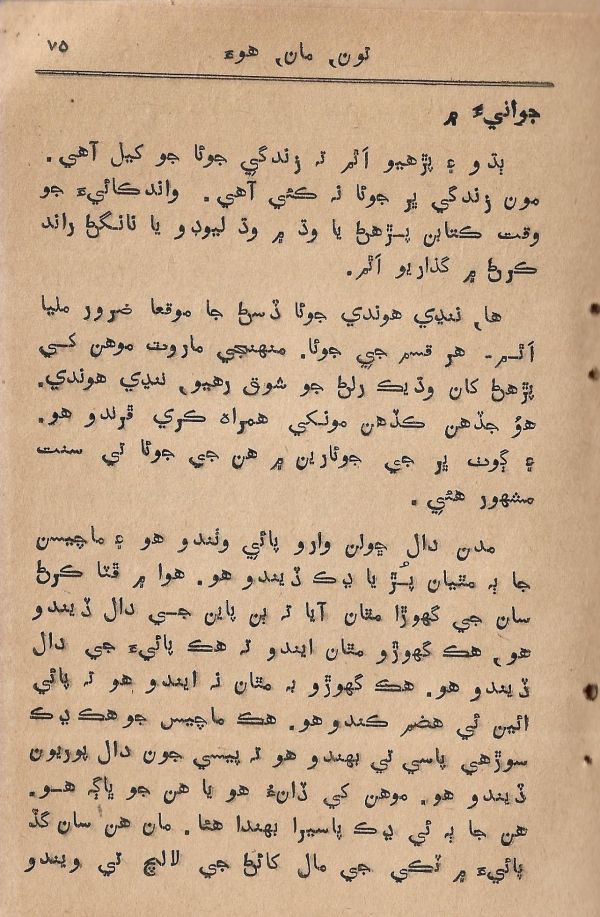 تون، مان، هوءَ ۷۵
جوانيءَ ۾
ٻڌو ۽ پڙهيو اٿم تہ زندگي جوئا جو کيل آهي.
مون زندگي ڀر جوئا نہ کٽي آهي. واندڪائيءَ جو
وقت ڪتابن پڙهڻ يا وڌ ۾ وڌ ليوڊو يا نانگڻ راند
ڪرڻ ۾ گذاريو اٿم.
ها، ننڍي هوندي جوئا ڏسڻ جا موقعا ضرور مليا
اٿم- هر قسم جي جوئا. منهنجي ماروٽ موهن کي
پڙهڻ کان وڌيڪ رلڻ جو شوق رهيو، ننڍي هوندي.
هوُ جڏهن ڪڏهن مونکي همراه ڪري ڦرندو هو.
۽ ڳوٺ ڀر جي جوئارين ۾ هن جي جوئا تي سنت
مشهور هئي.
مدن دال ڇولن وارو پائي وٺندو هو ۽ ماچيسن
جا ٻہ مٿيان پُڙ يا ڍڪ ڏيندو هو. هوا ۾ ڦٽا ڪرڻ
سان جي گهوڙا مٿان آيا تہ ٻن پاين جي دال ڏيندو
هو، هڪ گهوڙو مٿان ايندو تہ هڪ پائيءَ جي دال
ڏيندو هو. هڪ گهوڙو بہ مٿان نہ ايندو هو تہ پائي
ائين ئي هضم ڪندو هو. هڪ ماچيس جو هڪ ڍڪ
سوڙهي پاسي تي بهندو هو تہ پيسي جون دال پوريون
ڏيندو هو. موهن کي ڏانءُ هو يا هن جو ڀاڳہ هو.
هن جا ٻہ ئي ڍڪ پاسيرا بهندا هئا. مان هن سان گڏ
پائيءَ ۾ ٽڪي جي مال کائڻ جي لالچ تي ويندو